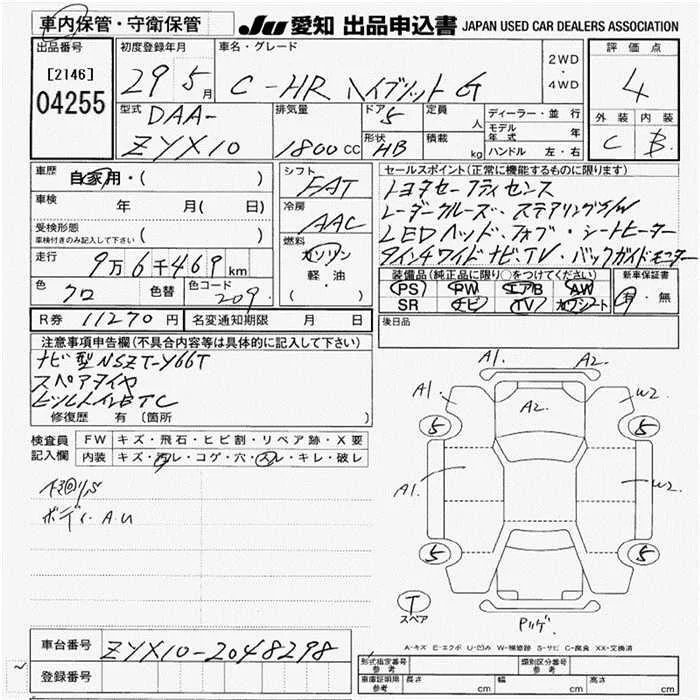 車内保管・守衛保管 JU 愛知 出品申込書 JAPAN USED CAR DEALERS ASSOCIATION
出品番号 初度登録年月 車名・グレード 評価点
[2146] 04255 29 5月 C-HR ハイブリットG 2WD・4WD 4
型式 排気量 ドア 定員 ディーラー・並行 外装 内装
DAA- 5 人 モデル年式 年 C B
ZYX10 1800cc 形状 HB 積載 kg ハンドル 左・右
車歴 自家用・( ) シフト FAT
セールスポイント(正常に機能するものに限ります)
車検 年 月( 日) 冷房 AAC
トヨタセーフティセンス
レーダークルーズ・ステアリングS/W
受検形態 車検付きのみ記入して下さい ( ) 燃料 ガソリン 軽・油 ( )
LEDヘッド、フォグ・シートヒーター
9インチワイドナビTV・バックガイドモニター
走行 9万6千469km
装備品(純正品に限り○をつけてください) 新車保証書
色 クロ 色替 色コード 209
PS PW エアB AW 有・無
SR ナビ TV カワシート
R券 11270円 名変通知期限 月 日 後日品
注意事項申告欄(不具合内容等は具体的に記入して下さい)
ナビ型NSZT-Y66T
スペアタイヤ
ビルトインETC
修復歴 有〔箇所 〕
検査員記入欄 FW キズ・飛石・ヒビ割・リペア跡・X要
内装 キズ・汚レ・コゲ・穴・スレ・キレ・破レ
下廻りS
ボディ・AU
A1. A2.
A1. A2. W2
5 5
A1. W2
5 5
T スペア
Pリゲ
A-キズ E-エクボ U-凹み W-補修跡 S-サビ C-腐食 XX-交換済
車台番号 ZYX10-2048298
登録番号
型式指定番号 参考 類別区分番号 参考
車庫証明用 参考 長さ cm 幅 cm 高さ cm